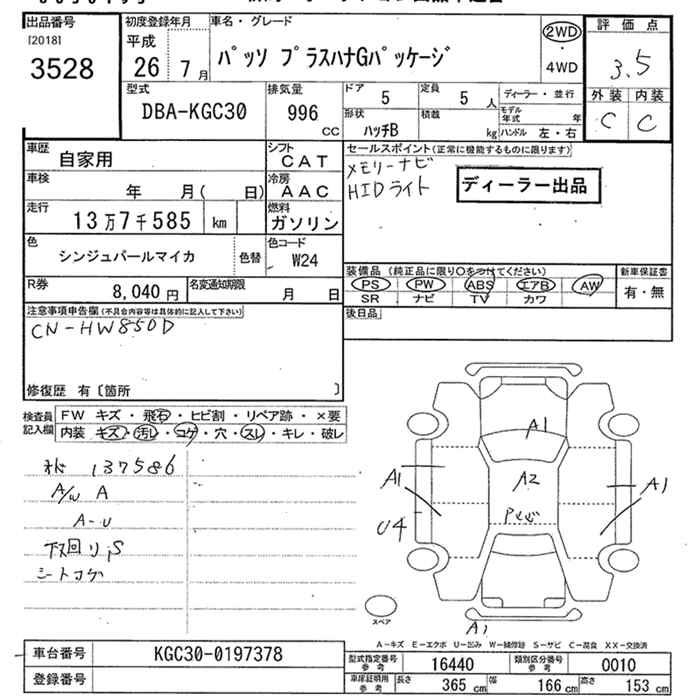 出品番号
[2018]
3528
初度登録年月
平成
26 7月
車名・グレード
パッソ プラスハナGパッケージ
2WD
・
4WD
評価点
3.5
外装 内装
C C
型式
DBA-KGC30
排気量
996
CC
ドア
5
定員
5 人
形状
ハッチB
積載
kg
ディーラー・並行
モデル年式 年
ハンドル 左・右
車歴
自家用
シフト
CAT
車検
年 月( 日)
冷房
AAC
走行
13万7千585 km
燃料
ガソリン
色
シンジュパールマイカ
色替
色コード
W24
R券
8,040 円
名変通知期限
月 日
セールスポイント(正常に機能するものに限ります)
メモリーナビ
HIDライト
ディーラー出品
装備品 (純正品に限り○をつけてください)
PS PW ABS エアB AW
SR ナビ TV カワ
新車保証書
有・無
後日品
注意事項申告欄(不具合内容等は具体的に記入して下さい)
CN-HW850D
修復歴 有〔箇所 〕
検査員
記入欄
FW キズ・飛石・ヒビ割・リペア跡・×要
内装 キズ・汚レ・コゲ・穴・スレ・キレ・破レ
137586
A/W A
A-U
下回りS
シートコゲ
A1
A2
A1
A1
U4
A1
スペア
A-キズ E-エクボ U-凹み W-補修跡 S-サビ C-腐食 XX-交換済
車台番号
KGC30-0197378
登録番号
型式指定番号
参考
16440
類別区分番号
参考
0010
車庫証明用
参考
長さ 365 cm
幅 166 cm
高さ 153 cm